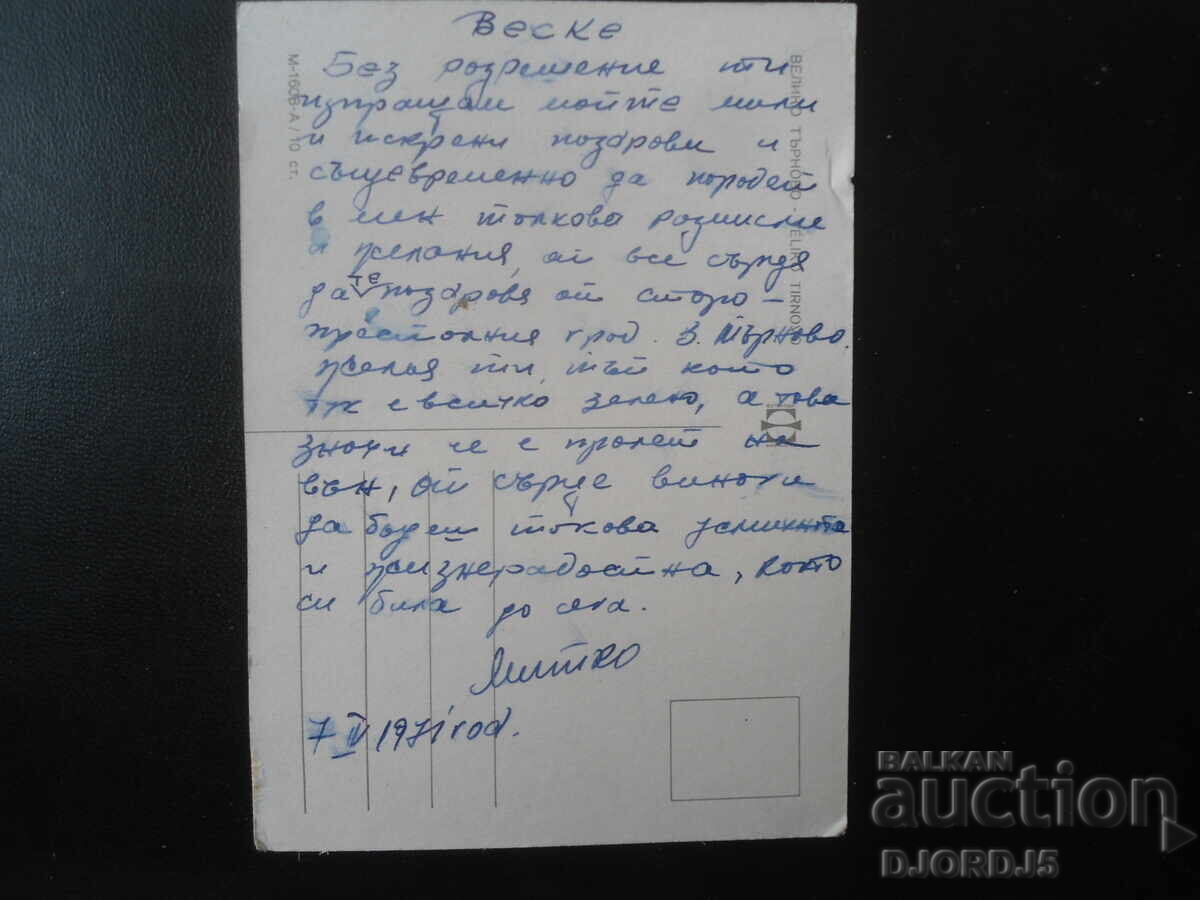 Веске
Без разрешение ти
изпращам моите мили
и искрени поздрави и
същевременно да породят
в мен толкова размисли
и желания, от все сърце
да те поздравя от старо-
престолния град В. Търново.
Желая ти, тъй както
тук е всичко зелено, а това
значи че е пролет на
вън, от сърце винаги
да бъдеш такова усмихната
и жизнерадостна, както
си била до сега.
Митко
7 IV 1971 год.
М-1606-А / 10 ст.
ВЕЛИКО ТЪРНОВО - VELIKO TIRNOVO
BALKAN
auction
DJORDJ5